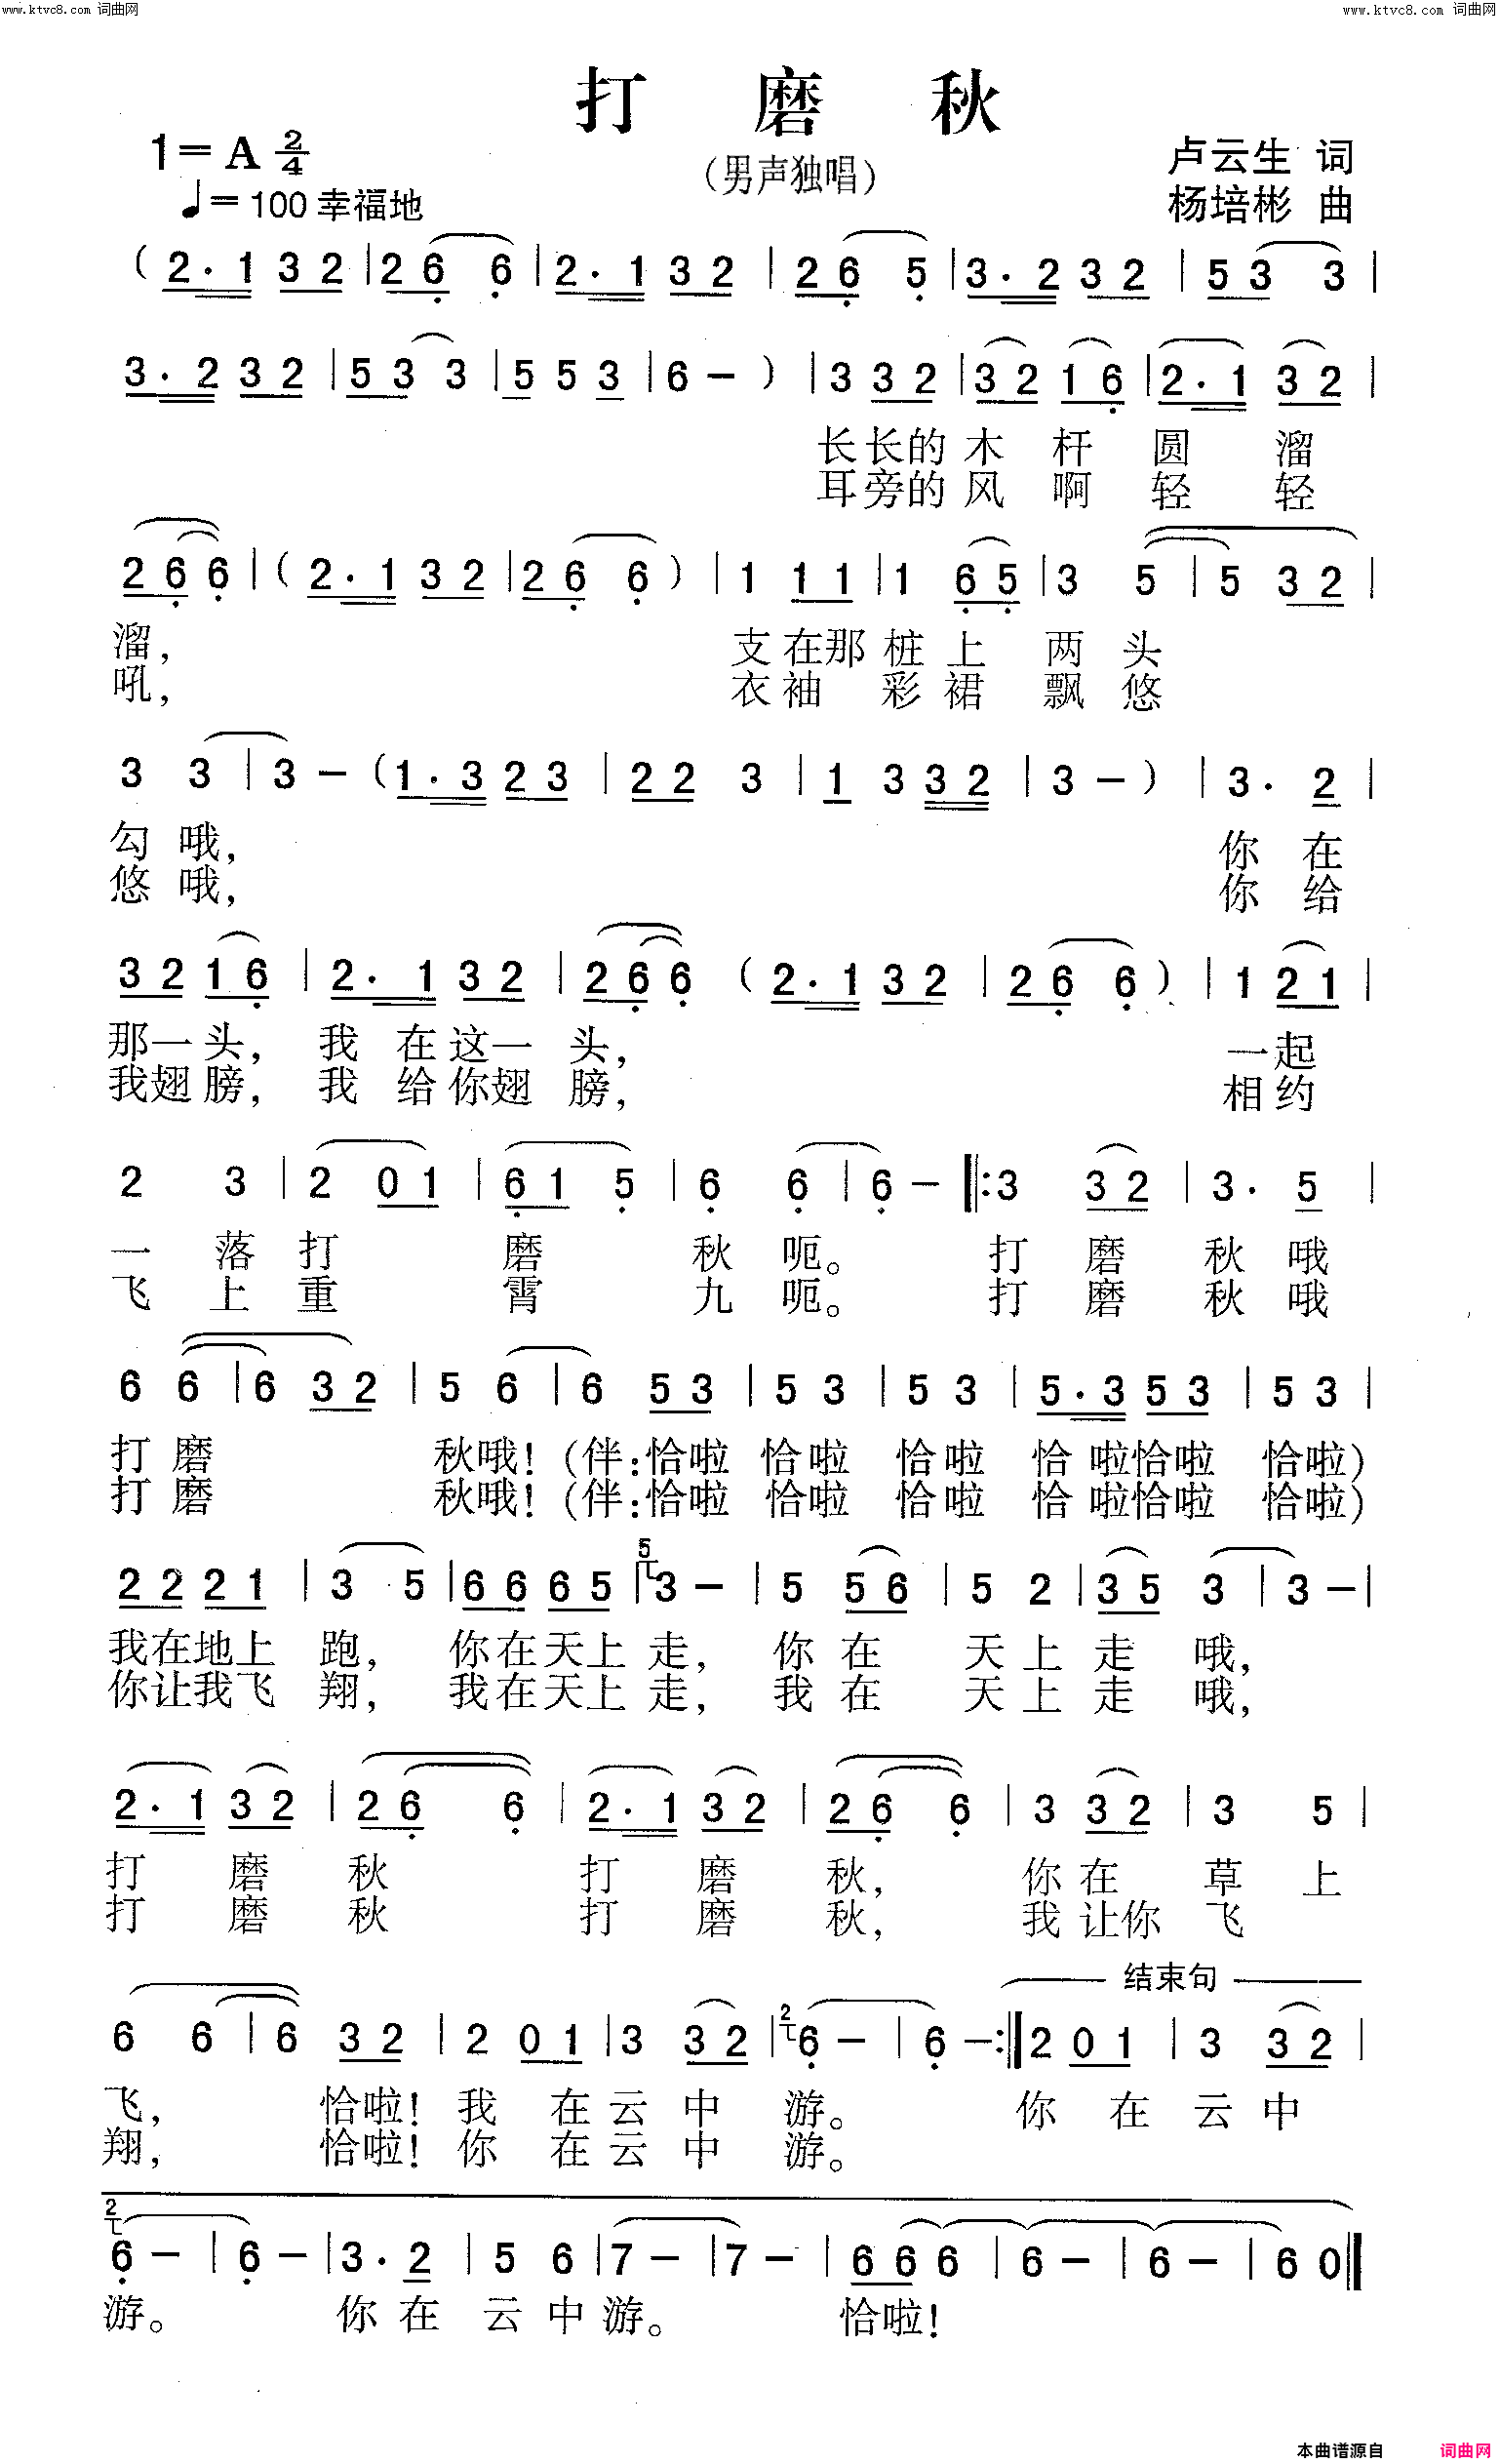 www.ktvc8.com 词曲网 www.ktvc8.com 词曲网
打 磨 秋
(男声独唱)
1=A 2/4
♩=100 幸福地
卢云生 词
杨培彬 曲
( 2. 1 3 2 | 2 6 6 | 2. 1 3 2 | 2 6 5 | 3. 2 3 2 | 5 3 3 |
3. 2 3 2 | 5 3 3 | 5 5 3 | 6 - ) | 3 3 2 | 3 2 1 6 | 2. 1 3 2 |
长长的 木 杆 圆 溜
耳旁的 风 啊 轻 轻
2 6 6 | ( 2. 1 3 2 | 2 6 6 ) | 1 1 1 | 1 6 5 | 3 5 | 5 3 2 |
溜, 支在那 桩 上 两 头
吼, 衣袖 彩 裙 飘 悠
3 3 | 3 - ( 1. 3 2 3 | 2 2 3 | 1 3 3 2 | 3 - ) | 3. 2 |
勾 哦, 你 在
悠 哦, 你 给
3 2 1 6 | 2. 1 3 2 | 2 6 6 ( 2. 1 3 2 | 2 6 6 ) | 1 2 1 |
那一头, 我 在这一 头, 一起
我翅膀, 我 给你翅 膀, 相约
2 3 | 2 0 1 | 6 1 5 | 6 6 | 6 - |: 3 3 2 | 3. 5 |
一 落 打 磨 秋 呃。 打 磨 秋 哦
飞 上 重 霄 九 呃。 打 磨 秋 哦
6 6 | 6 3 2 | 5 6 | 6 5 3 | 5 3 | 5 3 | 5. 3 5 3 | 5 3 |
打 磨 秋哦!(伴:恰啦 恰啦 恰啦 恰 啦恰啦 恰啦)
打 磨 秋哦!(伴:恰啦 恰啦 恰啦 恰 啦恰啦 恰啦)
2 2 2 1 | 3 5 | 6 6 6 5 | 5 3 - | 5 5 6 | 5 2 | 3 5 3 | 3 - |
我在地上 跑, 你在天上 走, 你 在 天 上 走 哦,
你让我飞 翔, 我在天上 走, 我 在 天 上 走 哦,
2. 1 3 2 | 2 6 6 | 2. 1 3 2 | 2 6 6 | 3 3 2 | 3 5 |
打 磨 秋 打 磨 秋, 你 在 草 上
打 磨 秋 打 磨 秋, 我 让你 飞
结束句
6 6 | 6 3 2 | 2 0 1 | 3 3 2 | 2 6 - | 6 - :| 2 0 1 | 3 3 2 |
飞, 恰啦! 我 在 云 中 游。 你 在 云 中
翔, 恰啦! 你 在 云 中 游。
2 6 - | 6 - | 3. 2 | 5 6 | 7 - | 7 - | 6 6 6 | 6 - | 6 - | 6 0 ‖
游。 你 在 云 中 游。 恰啦!
本曲谱源自 词曲网